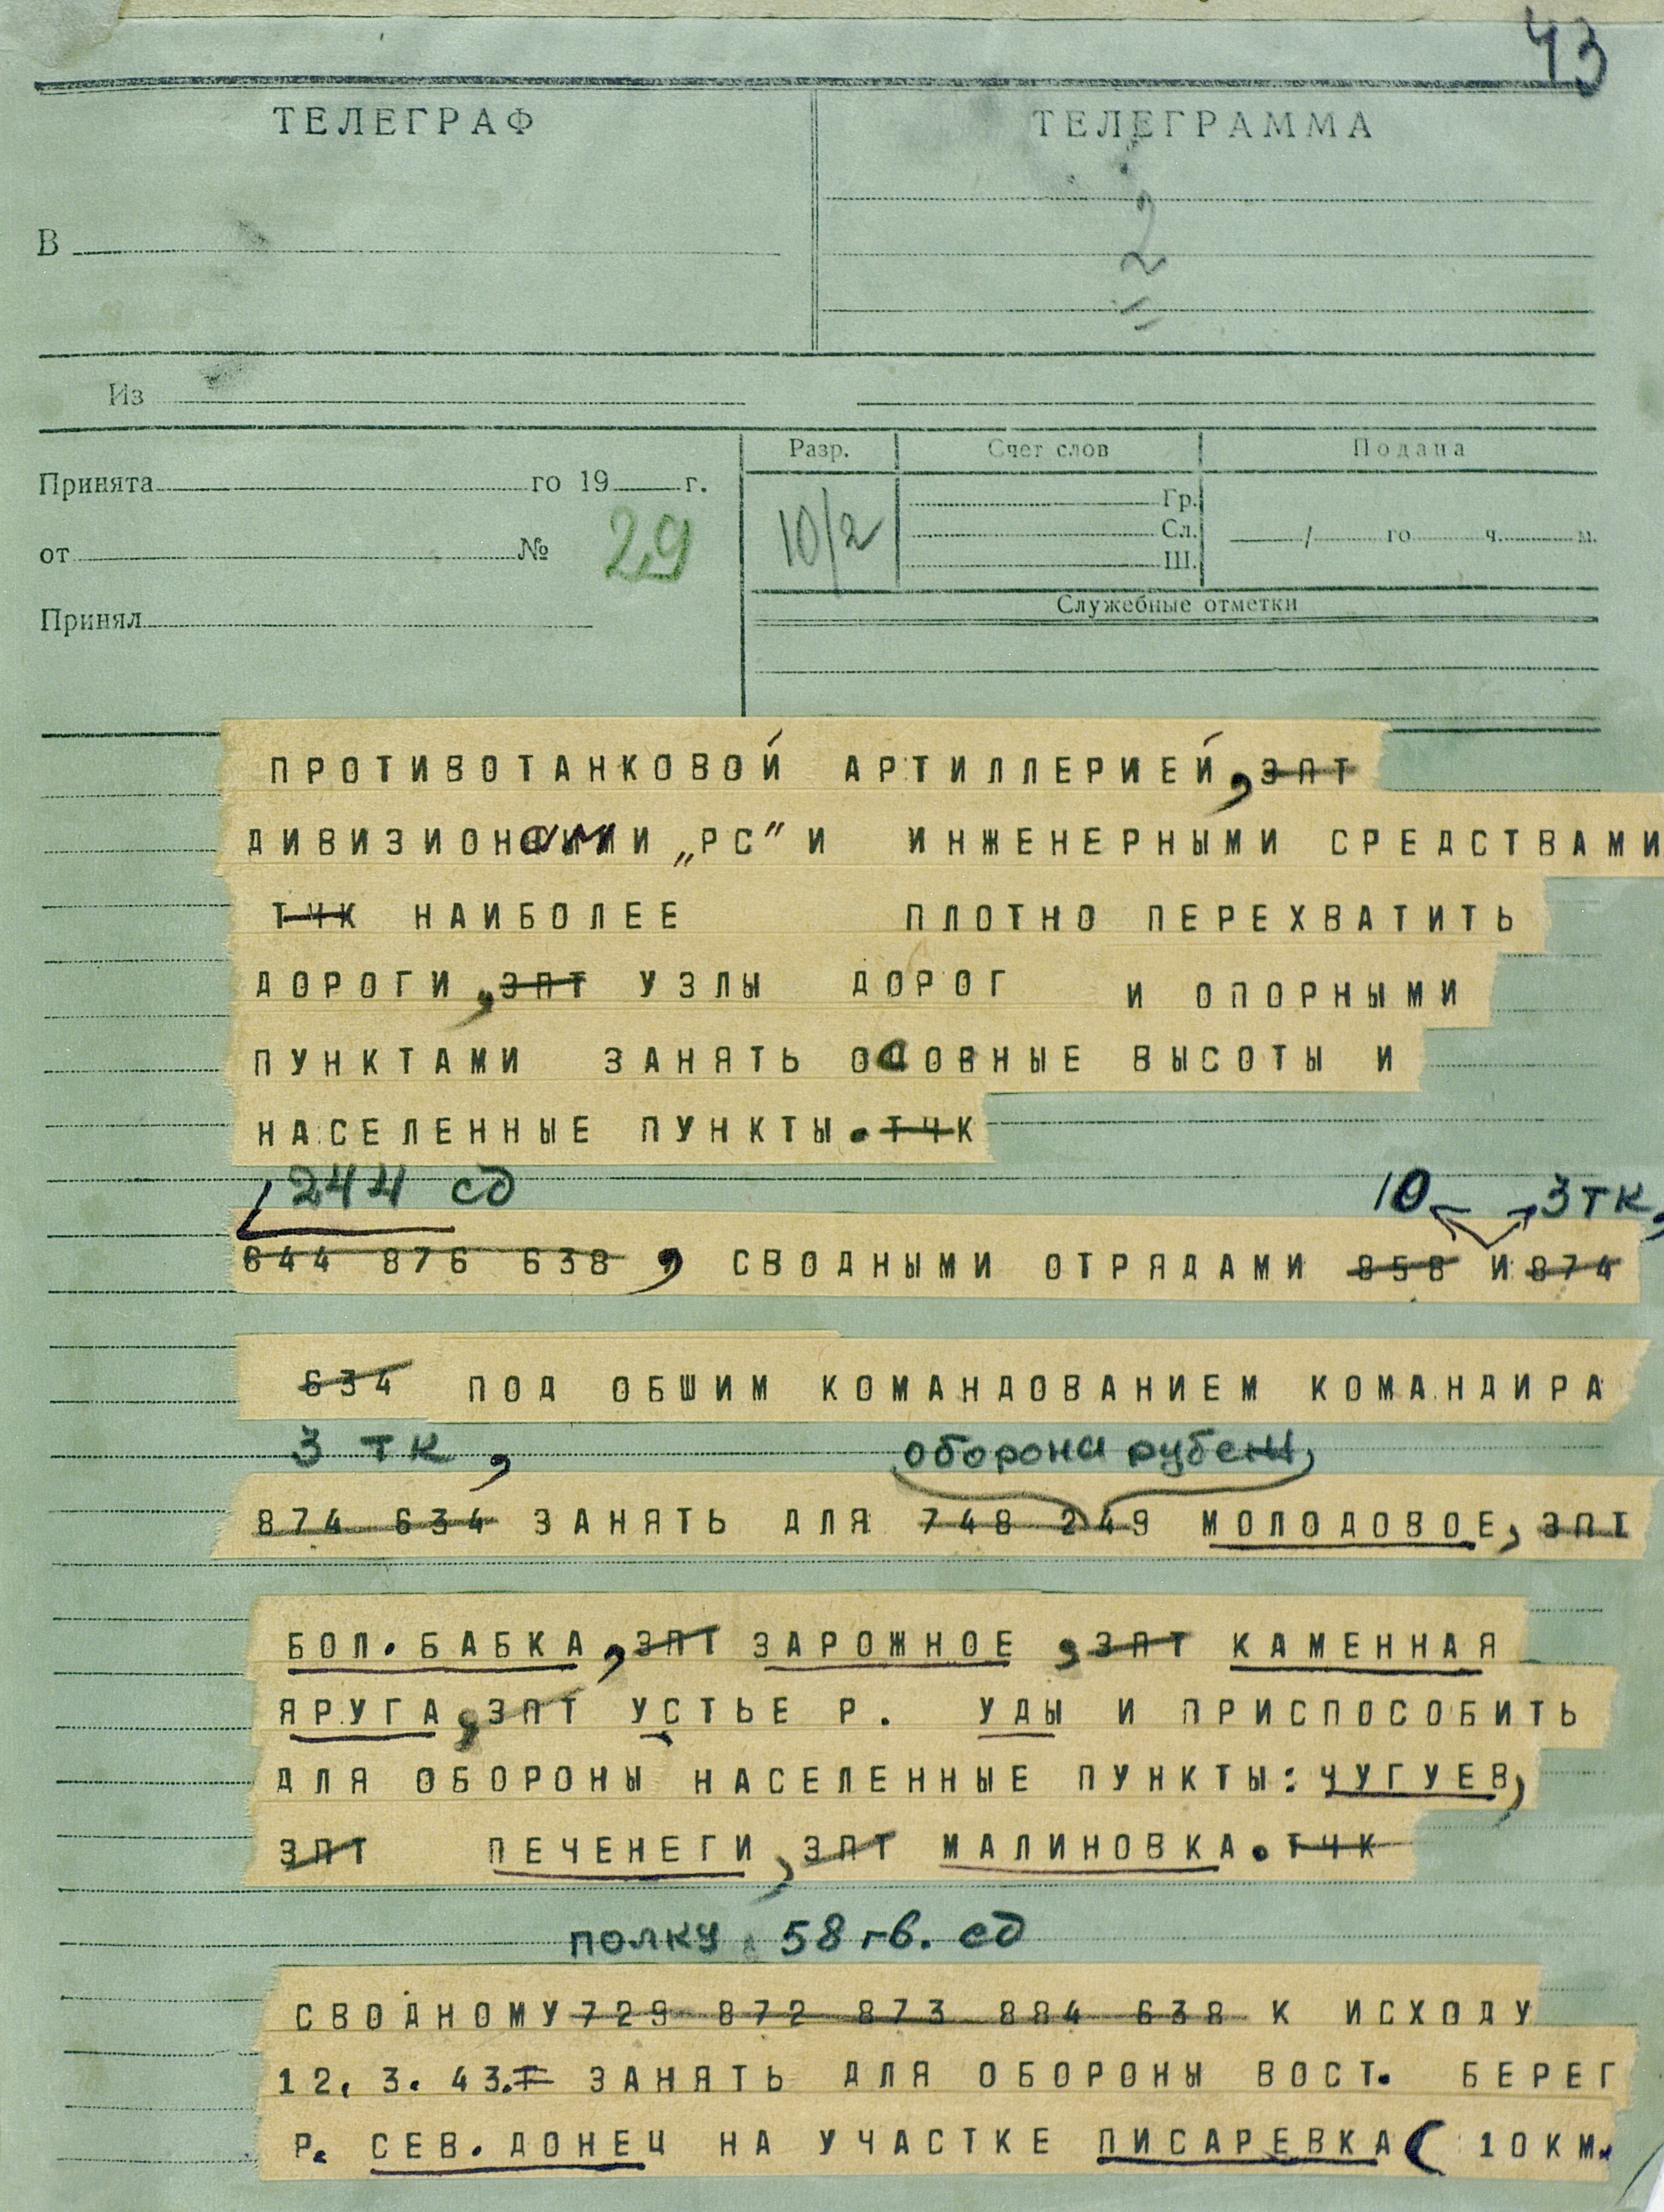 43
ТЕЛЕГРАФ
ТЕЛЕГРАММА
2
В
Из
Принята го 19 г.
от № 29
Принял
Разр.
Счет слов
Подана
10/2
Гр.
Сл.
Ш.
/ го ч. м.
Служебные отметки
ПРОТИВОТАНКОВОЙ АРТИЛЛЕРИЕЙ, ЗПТ
ДИВИЗИОНАМИ „РС" И ИНЖЕНЕРНЫМИ СРЕДСТВАМИ
ТЧК НАИБОЛЕЕ ПЛОТНО ПЕРЕХВАТИТЬ
ДОРОГИ, ЗПТ УЗЛЫ ДОРОГ И ОПОРНЫМИ
ПУНКТАМИ ЗАНЯТЬ ОСОВНЫЕ ВЫСОТЫ И
НАСЕЛЕННЫЕ ПУНКТЫ. ТЧК
244 сд
10 3 тк,
644 876 638, СВОДНЫМИ ОТРЯДАМИ 858 И 874
634 ПОД ОБШИМ КОМАНДОВАНИЕМ КОМАНДИРА
3 тк,
оборона рубеж
874 634 ЗАНЯТЬ ДЛЯ 748 249 МОЛОДОВОЕ, ЗПТ
БОЛ. БАБКА, ЗПТ ЗАРОЖНОЕ, ЗПТ КАМЕННАЯ
ЯРУГА, ЗПТ УСТЬЕ Р. УДЫ И ПРИСПОСОБИТЬ
ДЛЯ ОБОРОНЫ НАСЕЛЕННЫЕ ПУНКТЫ: ЧУГУЕВ,
ЗПТ ПЕЧЕНЕГИ, ЗПТ МАЛИНОВКА. ТЧК
полку 58 гв. сд
СВОДНОМУ 729 872 873 884 638 К ИСХОДУ
12. 3. 43. Г ЗАНЯТЬ ДЛЯ ОБОРОНЫ ВОСТ. БЕРЕГ
Р. СЕВ. ДОНЕЦ НА УЧАСТКЕ ПИСАРЕВКА ( 10 КМ.